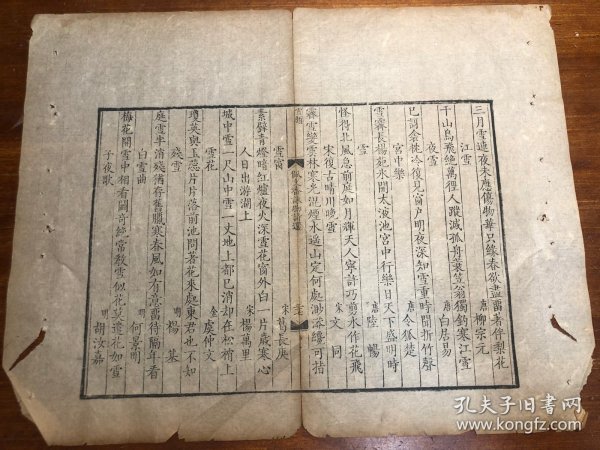 三月雪連夜未應傷物華只緣春欲盡留著伴梨花
江雪 唐柳宗元
千山鳥飛絕萬徑人蹤滅孤舟蓑笠翁獨釣寒江雪
夜雪 唐白居易
已訝衾枕冷復見窗戶明夜深知雪重時聞折竹聲
宮中樂 唐令狐楚
雪霽長楊苑冰開太液池宮中行樂日天下盛明時
雪 唐陸暢
怪得北風急前庭如月輝天人寧許巧剪水作花飛
宋復古晴川晚雪 宋文同
霖雪變雲林寒光混煙水遥山定何處渺渺纔可指
雪類
三七
雪窗 宋葛長庚
素壁青燈暗紅爐夜火深雪花窗外白一片歲寒心
人日出游湖上 宋楊萬里
城中雪一尺山中雪一丈地上都已消却在松梢上
雪花 金虞仲文
瓊英與玉蕊片片落前池問著花來處東君也不知
殘雪 明楊基
庭雪半消殘猶存舊臘寒春風如有意留待隔年看
白雪曲 明何景明
子夜歌 明胡汝嘉
孔夫子旧书网
www.kongfz.com